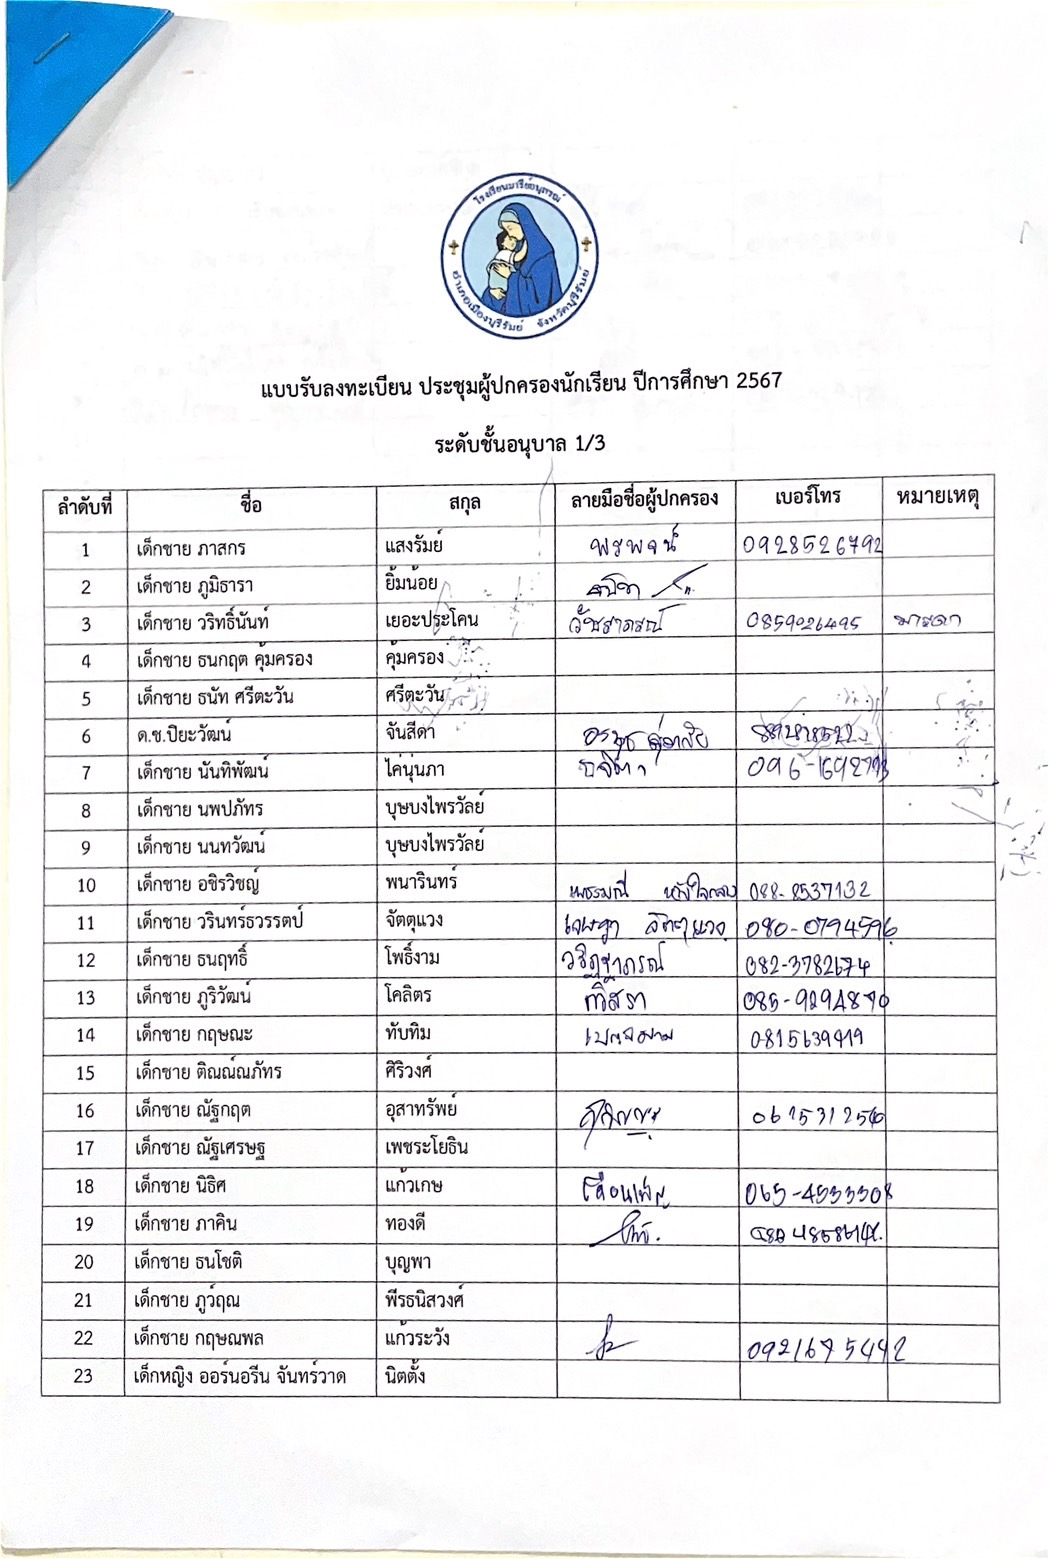 โรงเรียนมารีย์อนุสรณ์
อำเภอเมืองบุรีรัมย์ จังหวัดบุรีรัมย์
แบบรับลงทะเบียน ประชุมผู้ปกครองนักเรียน ปีการศึกษา 2567
ระดับชั้นอนุบาล 1/3
ลำดับที่ ชื่อ สกุล ลายมือชื่อผู้ปกครอง เบอร์โทร หมายเหตุ
1 เด็กชาย ภาสกร แสงรัมย์ พรพจน์ 0928526792
2 เด็กชาย ภูมิธารา ยิ้มน้อย
3 เด็กชาย วริทธิ์นันท์ เยอะประโคน วัชราภรณ์ 0859026495 มารดา
4 เด็กชาย ธนกฤต คุ้มครอง คุ้มครอง
5 เด็กชาย ธนัท ศรีตะวัน ศรีตะวัน
6 ด.ช.ปิยะวัฒน์ จันสีดา
7 เด็กชาย นันทิพัฒน์ ไค่นุ่นภา
8 เด็กชาย นพปภัทร บุษบงไพรวัลย์
9 เด็กชาย นนทวัฒน์ บุษบงไพรวัลย์
10 เด็กชาย อชิรวิชญ์ พนารินทร์ 088-8537132
11 เด็กชาย วรินทร์ธวรรตป์ จัตตุแวง 080-0794596
12 เด็กชาย ธนฤทธิ์ โพธิ์งาม 082-3782674
13 เด็กชาย ภูริวัฒน์ โคลิตร
14 เด็กชาย กฤษณะ ทับทิม
15 เด็กชาย ติณณ์ณภัทร ศิริวงศ์
16 เด็กชาย ณัฐกฤต อุสาทรัพย์
17 เด็กชาย ณัฐเศรษฐ เพชระโยธิน
18 เด็กชาย นิธิศ แก้วเกษ เดือนเพ็ญ 065-4533308
19 เด็กชาย ภาคิน ทองดี
20 เด็กชาย ธนโชติ บุญพา
21 เด็กชาย ภูว์ฤณ พีรธนิสวงศ์
22 เด็กชาย กฤษณพล แก้วระวัง 0921675442
23 เด็กหญิง ออร์นอรีน จันทร์วาด นิตตั้ง